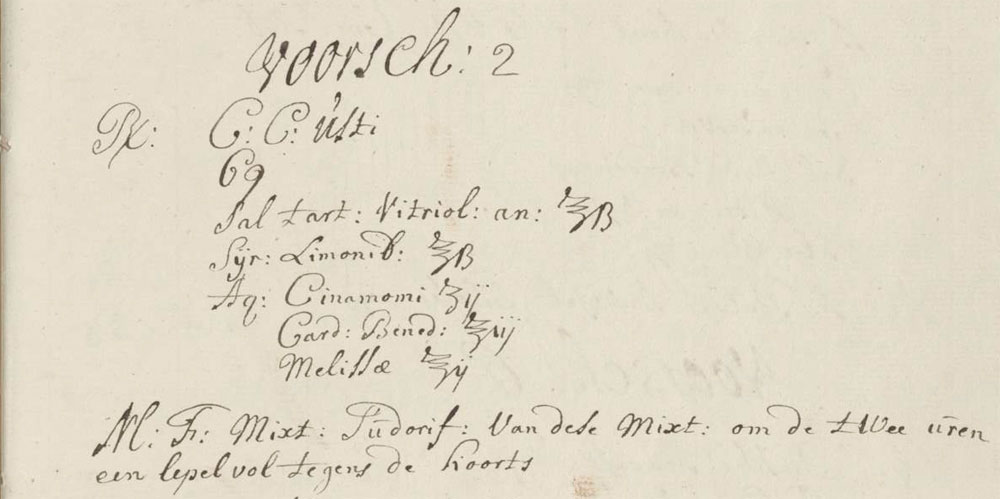 Voorsch: 2
℞: C: C: Usti
69
Sal tart: Vitriol: an: ℥ß
Sÿr: Limonib: ℥ß
Aq: Cinamomi ʒij
Card: Bened: ℥iij
Melissæ ℥ij
M: F: Mixt: Sudorif: Van dese Mixt: om de twee uren
een lepel vol tegens de koorts